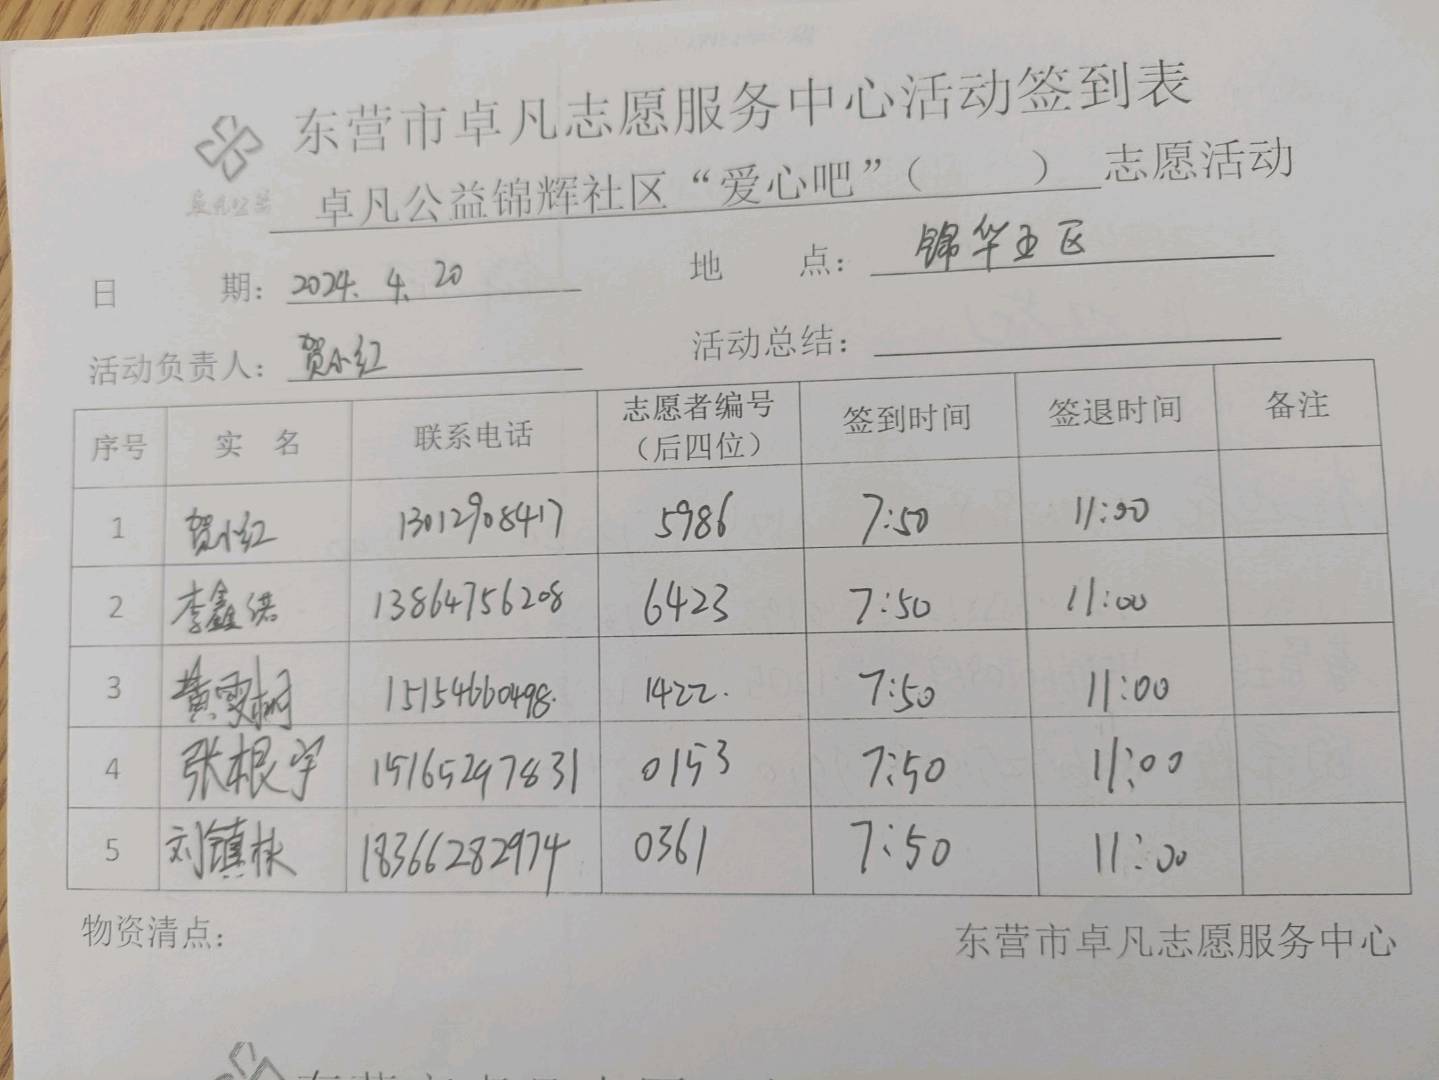 东营市卓凡志愿服务中心活动签到表
卓凡公益
卓凡公益锦辉社区“爱心吧”（ ）志愿活动
日 期：2024.4.20 地 点：锦华五区
活动负责人：贺小红 活动总结：
序号 实 名 联系电话 志愿者编号（后四位） 签到时间 签退时间 备注
1 贺小红 13012908417 5986 7:50 11:00
2 李鑫洪 13864756208 6423 7:50 11:00
3 黄雯树 15154660498. 1422. 7:50 11:00
4 张根宇 15165297831 0153 7:50 11:00
5 刘镇林 18366282974 0361 7:50 11:00
物资清点：
东营市卓凡志愿服务中心